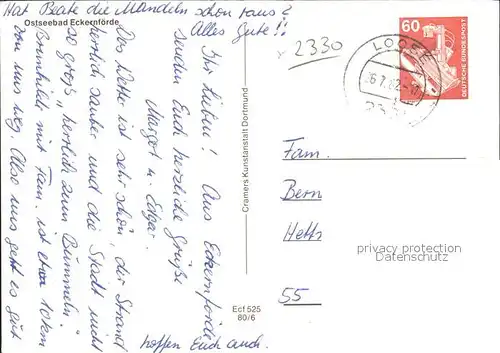 Hat Beate die Mandeln schon raus?
Alles Gute!!
Ostseebad Eckernförde
Ihr Lieben! Aus Eckernförde
senden Euch herzliche Grüße
Margot u. Edgar.
Das Wetter ist sehr schön, der Strand
herrlich sauber und die Stadt nicht
so groß, herrlich zum Bummeln.
Brunhild mit Fam. ist etwa 10 km
von uns weg. Also uns geht es gut
hoffen Euch auch.
Cramers Kunstanstalt Dortmund
Ecf 525
80/6
2330
LOOSE
60
DEUTSCHE BUNDESPOST
Fam.
Bern
Hetts
55
personal data
Privacy protection